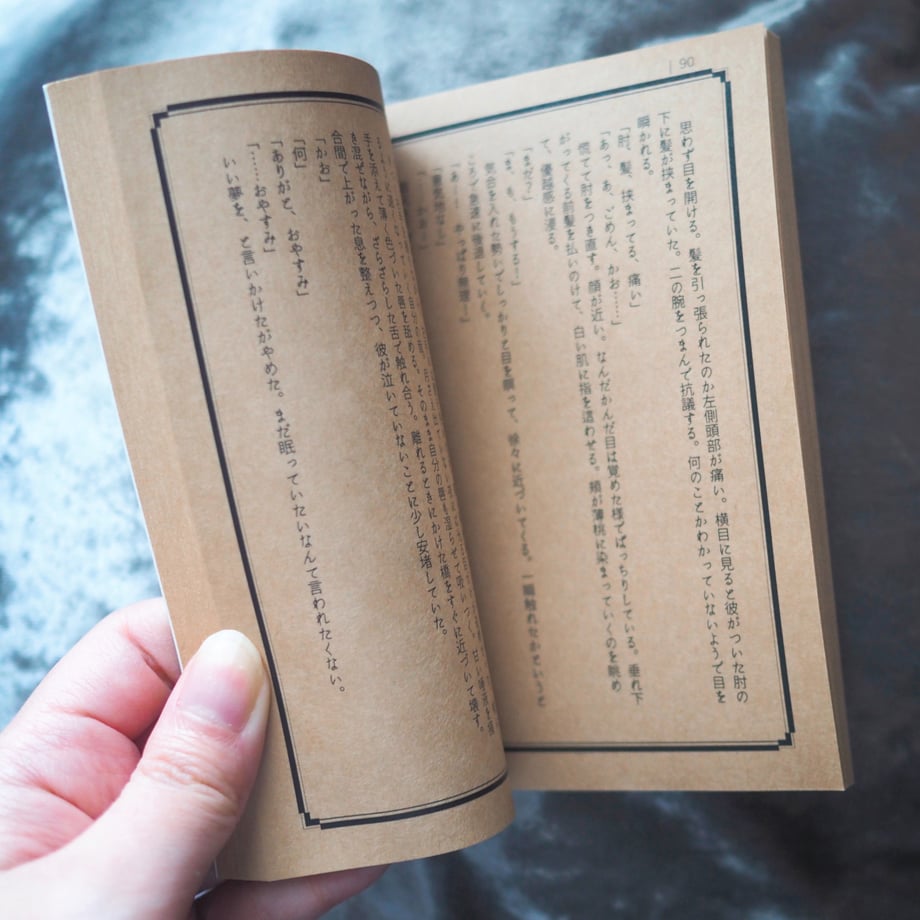 90
思わず目を開ける。髪を引っ張られたのか左側頭部が痛い。横目に見ると彼がついた肘の
下に髪が挟まっていた。二の腕をつまんで抗議する。何のことかわかっていないようで目を
瞬かれる。
「肘、髪、挟まってる、痛い」
「あっ、あ、ごめん、かお……」
慌てて肘をつき直す。顔が近い。なんだかんだ目は覚めた様でぱっちりしている。垂れ下
がってくる前髪を払いのけて、白い肌に指を這わせる。頬が薄桃に染まっていくのを眺め
て、優越感に浸る。
「まだ？」
「ま、も、もうする！」
気合を入れた勢いでしっかりと目を瞑って、徐々に近づいてくる。一瞬触れたかというと
ころで急速に後退していく。
「あ……やっぱり無理！」
「意気地なし」
手を添えて薄く色づいた唇を舐める。そのまま自分の唇も湿らせて吸いつく。甘い唾液を
き混ぜながら、ざらざらした舌で触れ合う。離れるときにかけた橋をすぐに近づいて壊す。
合間で上がった息を整えつつ、彼が泣いていないことに少し安堵していた。
「かお」
「何」
「ありがと、おやすみ」
「……おやすみ」
いい夢を、と言いかけたがやめた。まだ眠っていたいなんて言われたくない。